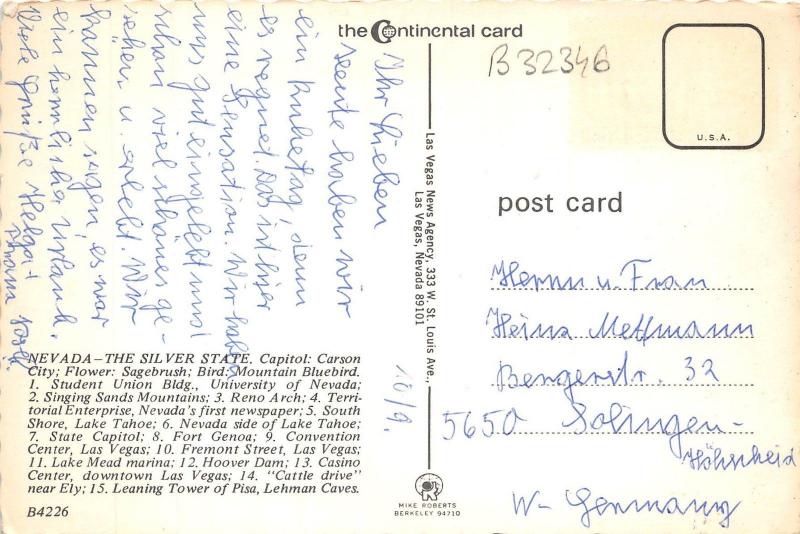 the Continental card
B 32346
U.S.A.
post card
Ihr Lieben
heute haben wir
ein Ruhetag, denn
es regnet. Das ist hier
eine Sensation. Wir haben
uns gut eingelebt und
schon viel schönes ge-
sehen u. erlebt. Wir
kannen sagen, es war
ein herrlicher Urlaub.
Viele Grüße Helga +
10/9.
Las Vegas News Agency, 333 W. St. Louis Ave.,
Las Vegas, Nevada 89101
Herrn u. Frau
Heinz Meffmann
Bergerstr. 32
5650 Solingen-
Höhscheid
W-Germany
NEVADA—THE SILVER STATE. Capitol: Carson
City; Flower: Sagebrush; Bird: Mountain Bluebird.
1. Student Union Bldg., University of Nevada;
2. Singing Sands Mountains; 3. Reno Arch; 4. Terri-
torial Enterprise, Nevada's first newspaper; 5. South
Shore, Lake Tahoe; 6. Nevada side of Lake Tahoe;
7. State Capitol; 8. Fort Genoa; 9. Convention
Center, Las Vegas; 10. Fremont Street, Las Vegas;
11. Lake Mead marina; 12. Hoover Dam; 13. Casino
Center, downtown Las Vegas; 14. "Cattle drive"
near Ely; 15. Leaning Tower of Pisa, Lehman Caves.
B4226
MIKE ROBERTS
BERKELEY 94710